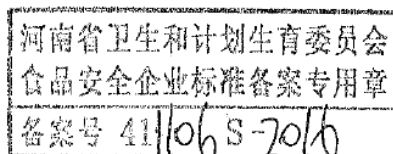 河南省卫生和计划生育委员会
食品安全企业标准备案专用章
备案号 411106S-2016